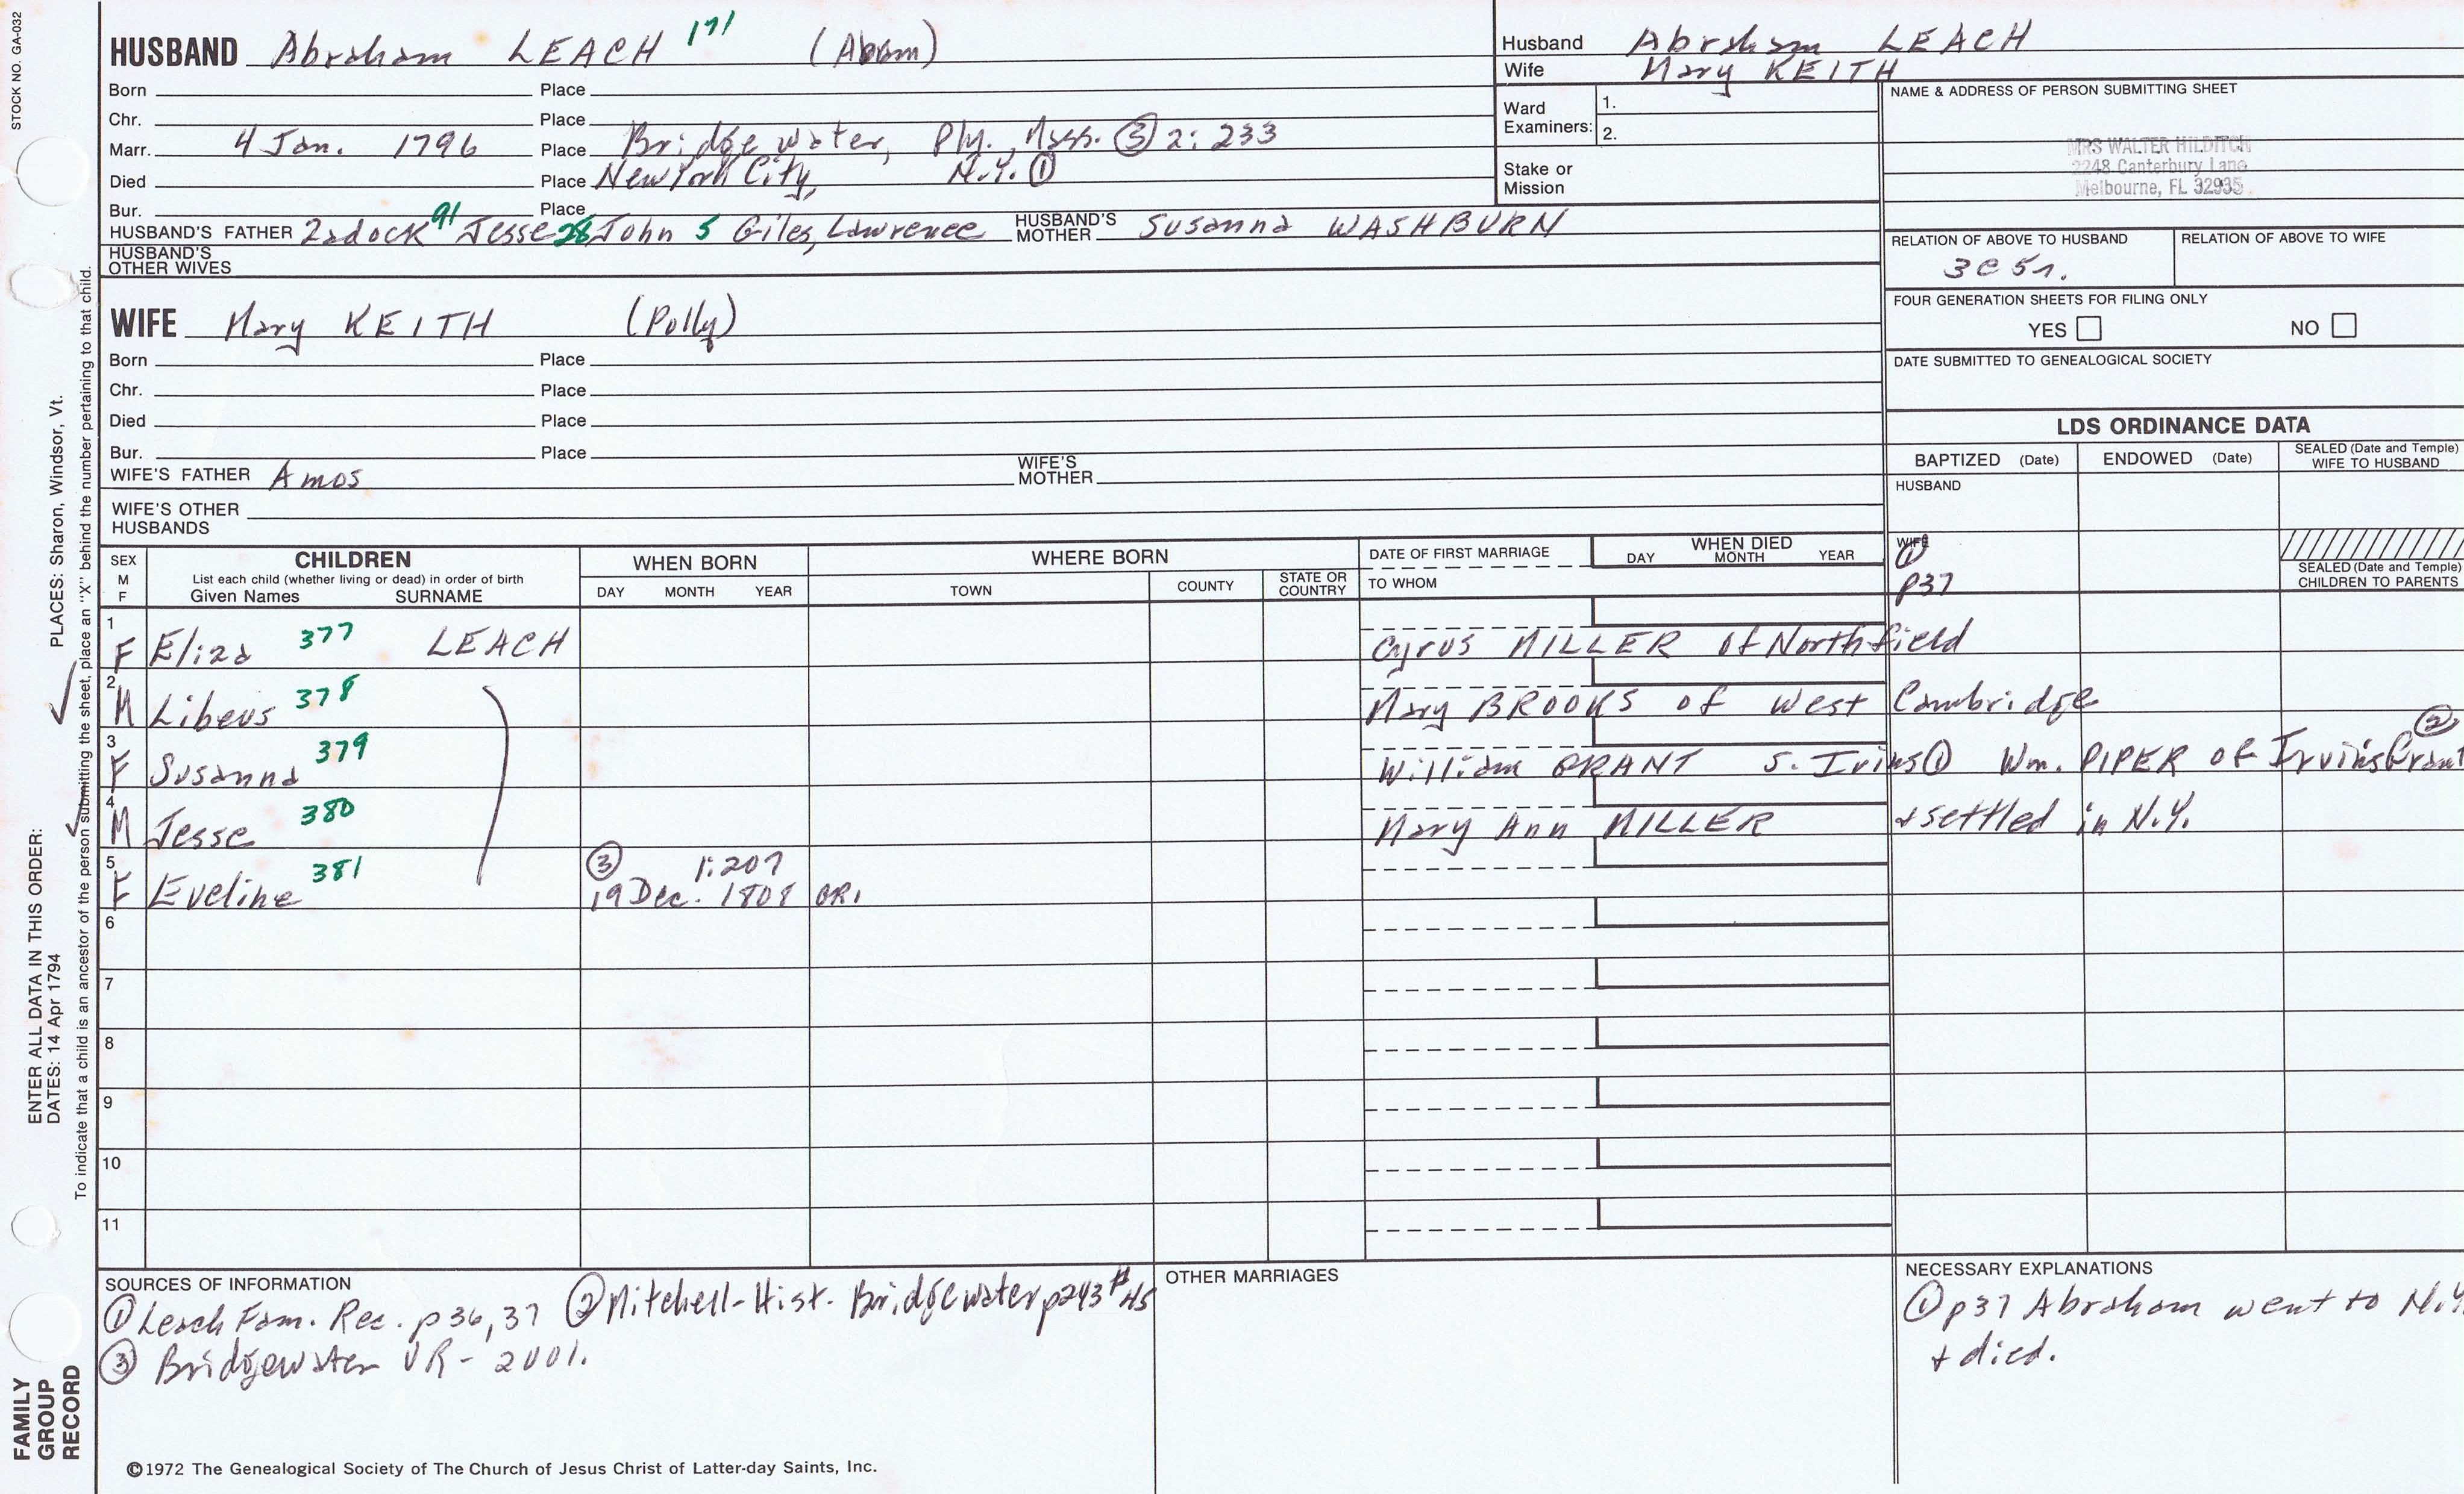 STOCK NO. GA-032
HUSBAND Abraham LEACH 171 (Abram)
Born Place
Chr. Place
Marr. 4 Jan. 1796 Place Bridgewater, Ply. Mass. ③ 2:233
Died Place New York City, N.Y. ①
Bur. Place
HUSBAND'S FATHER Zadock 91 Jesse 28 John 5 Giles, Lawrence HUSBAND'S MOTHER Susanna WASHBURN
HUSBAND'S OTHER WIVES
WIFE Mary KEITH (Polly)
Born Place
Chr. Place
Died Place
Bur. Place
WIFE'S FATHER Amos WIFE'S MOTHER
WIFE'S OTHER HUSBANDS
Husband Abraham LEACH
Wife Mary KEITH
Ward Examiners: 1.
2.
Stake or Mission
NAME & ADDRESS OF PERSON SUBMITTING SHEET
MRS WALTER HILDITCH
2248 Canterbury Lane
Melbourne, FL 32935
RELATION OF ABOVE TO HUSBAND RELATION OF ABOVE TO WIFE
3C5r.
FOUR GENERATION SHEETS FOR FILING ONLY
YES NO
DATE SUBMITTED TO GENEALOGICAL SOCIETY
LDS ORDINANCE DATA
BAPTIZED (Date) ENDOWED (Date) SEALED (Date and Temple) WIFE TO HUSBAND
HUSBAND
WIFE
① p37
SEALED (Date and Temple) CHILDREN TO PARENTS
SEX M F CHILDREN
List each child (whether living or dead) in order of birth
Given Names SURNAME
WHEN BORN
DAY MONTH YEAR
WHERE BORN
TOWN COUNTY STATE OR COUNTRY
DATE OF FIRST MARRIAGE
TO WHOM
WHEN DIED
DAY MONTH YEAR
1 F Eliza 377 LEACH Cyrus MILLER of Northfield
2 M Libeus 378 Mary BROOKS of West Cambridge
3 F Susanna 379 William GRANT S. Irvins ① Wm. PIPER of Irvins Grant ②
4 M Jesse 380 Mary Ann MILLER + settled in N.Y.
5 F Eveline 381 ③ 1:207
19 Dec. 1808 BR.
6
7
8
9
10
11
SOURCES OF INFORMATION
① Leach Fam. Rec. p36,37 ② Mitchell-Hist. Bridgewater p243 #45
③ Bridgewater VR - 2001.
OTHER MARRIAGES
NECESSARY EXPLANATIONS
① p37 Abraham went to N.Y.
+ died.
©1972 The Genealogical Society of The Church of Jesus Christ of Latter-day Saints, Inc.
FAMILY GROUP RECORD
ENTER ALL DATA IN THIS ORDER:
DATES: 14 Apr 1794
PLACES: Sharon, Windsor, Vt.
To indicate that a child is an ancestor of the person submitting the sheet, place an "X" behind the number pertaining to that child.